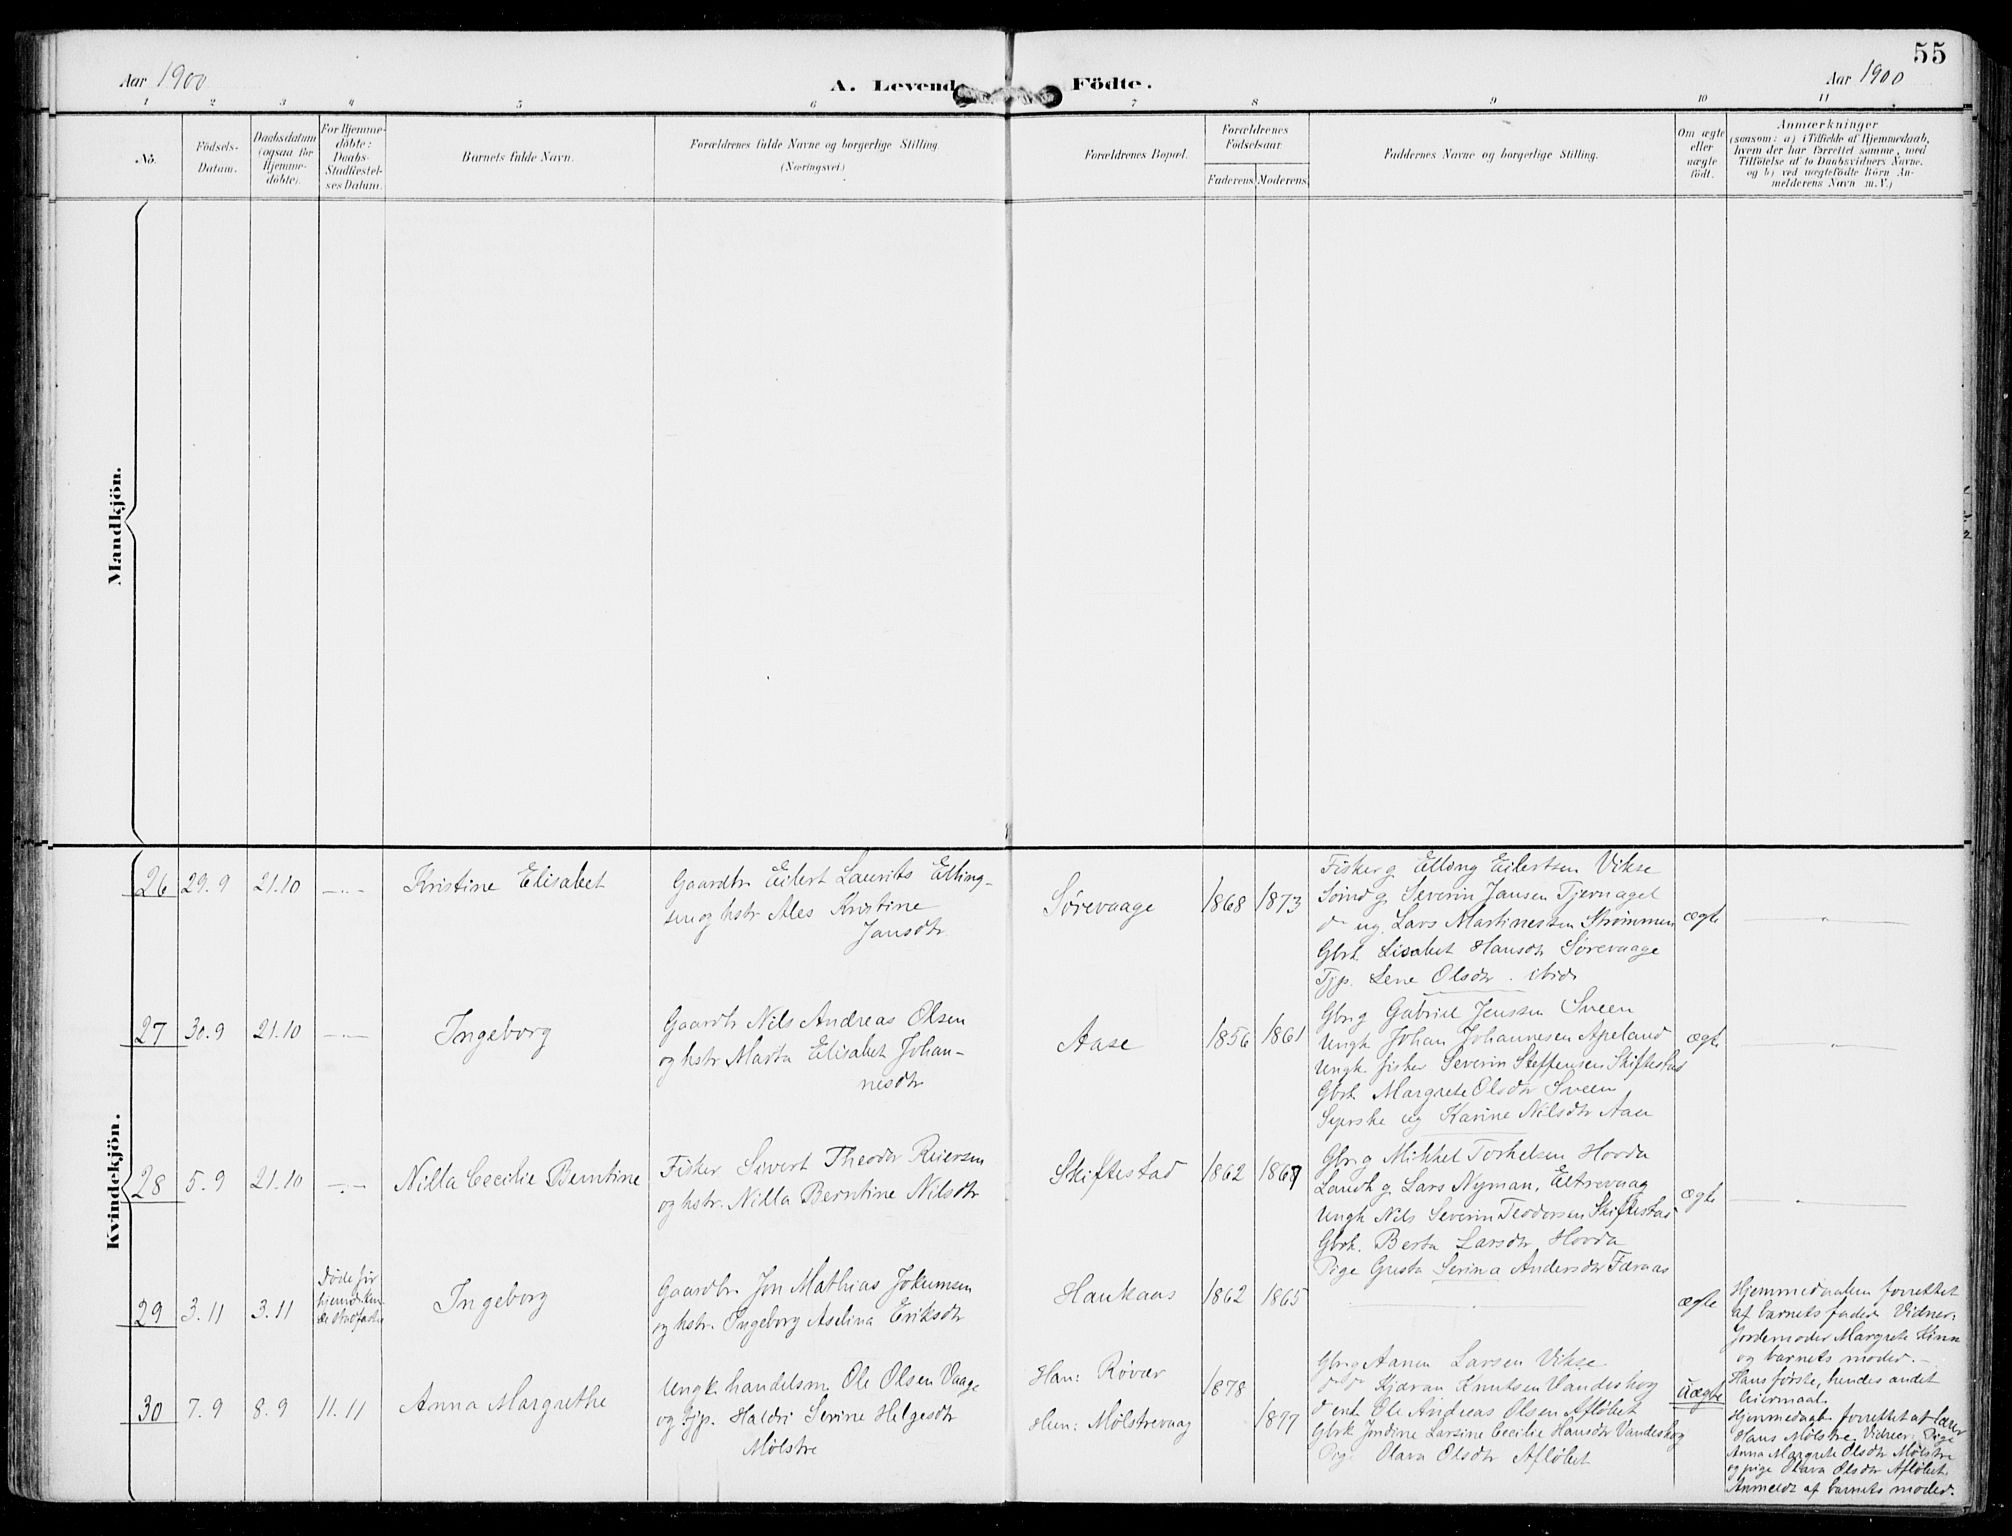 55
Aar 1900
A. Levende Födte.
Aar 1900
1 2 3 4 5 6 7 8 9 10 11
No.
Födsels-
Datum.
Daabsdatum
(ogsaa for
Hjemme-
döbte).
For Hjemme-
döbte:
Daabs-
Stadfæstel-
ses Datum.
Barnets fulde Navn.
Forældrenes fulde Navne og borgerlige Stilling.
(Næringsvei)
Forældrenes Bopæl.
Forældrenes
Födselsaar.
Faderens. Moderens.
Faddernes Navne og borgerlige Stilling.
Om ægte
eller
uægte
födt.
Anmærkninger
(saasom: a) i Tilfælde af Hjemmedaab,
hvem der har forrettet samme, med
Tilföielse af to Daabsvidners Navne,
og b) ved uægtefödte Börn An-
melderens Navn m.V.)
Mandkjön.
Kvindekjön.
26 29.9 21.10 Kristine Elisabet
Gaardbr. Eilert Laurits Elling-
sen og hstr Ales Kristine
Jansdtr
Sørevaage 1868 1873
Fisker g Elling Eilertsen Vikse
Sømd g. Severin Jansen Tjernagel
do ug. Lars Martinessen Strømmen
Gbrk. Lisabet Hansdtr Sørevaage
Tjp. Lene Olsdtr. ibid.
ægte
27 30.9 21.10 Ingeborg
Gaardbr Nils Andreas Olsen
og hstr Marta Elisabet Johan-
nesdtr
Aase 1856 1861
Gbr g Gabriel Jenssen Sveen
Ungk Johan Johannesen Apeland
Ungk. fisker Severin Steffensen Skiftestad
Gbrk Margrete Olsdtr Sveen
Syerske ug Karine Nilsdtr Aase
ægte
28 5.9 21.10 Nilla Cecilie Berntine
Fisker Sivert Theodor Reiersen
og hstr. Nilla Berntine Nilsdtr
Skiftestad 1862 1867
Gbr g Mikkel Torkelsen Hovda
Landh g. Lars Nyman, Eltrevaag
Ungk Nils Severin Teodorsen Skiftestad
Gbrk. Berta Larsdtr Hovda
Pige Gusta Serina Andersdtr Færaas
ægte
29 3.11 3.11
Døde før
hjemmedaaben
Ingeborg
Gaardbr. Jon Mathias Jokumsen
og hstr. Ingeborg Aselina Eriksdtr
Haukaas 1862 1865 ægte
Hjemmedaaben forrettet
af barnets fader. Vidner:
Jordemoder Margrete Kinn
og barnets moder.
30 7.9 8.9 11.11 Anna Margrethe
Ungk. handelsm. Ole Olsen Vaage
og tjp. Haldri Serine Helgesdtr
Mølstre
Han: Røvær 1878
Hun: Mølstrevaag 1877
Gbr g Aanen Larsen Vikse
do do Kjæran Knutsen Vandeskog
do enk Ole Andreas Olsen Afløbet
Gbrk Jordine Larsine Cecilie Hansdtr Vandeskog
Pige Olava Olsdtr Afløbet
Uægte
Hans første, hendes andet
leiermaal.
Hjemmedaab forrettet af lærer
Hans Mølstre. Vidner: Pige
Anna Margrete Olsdtr Mølstre
og pige Olava Olsdtr Afløbet.
Anmeldt af barnets moder.